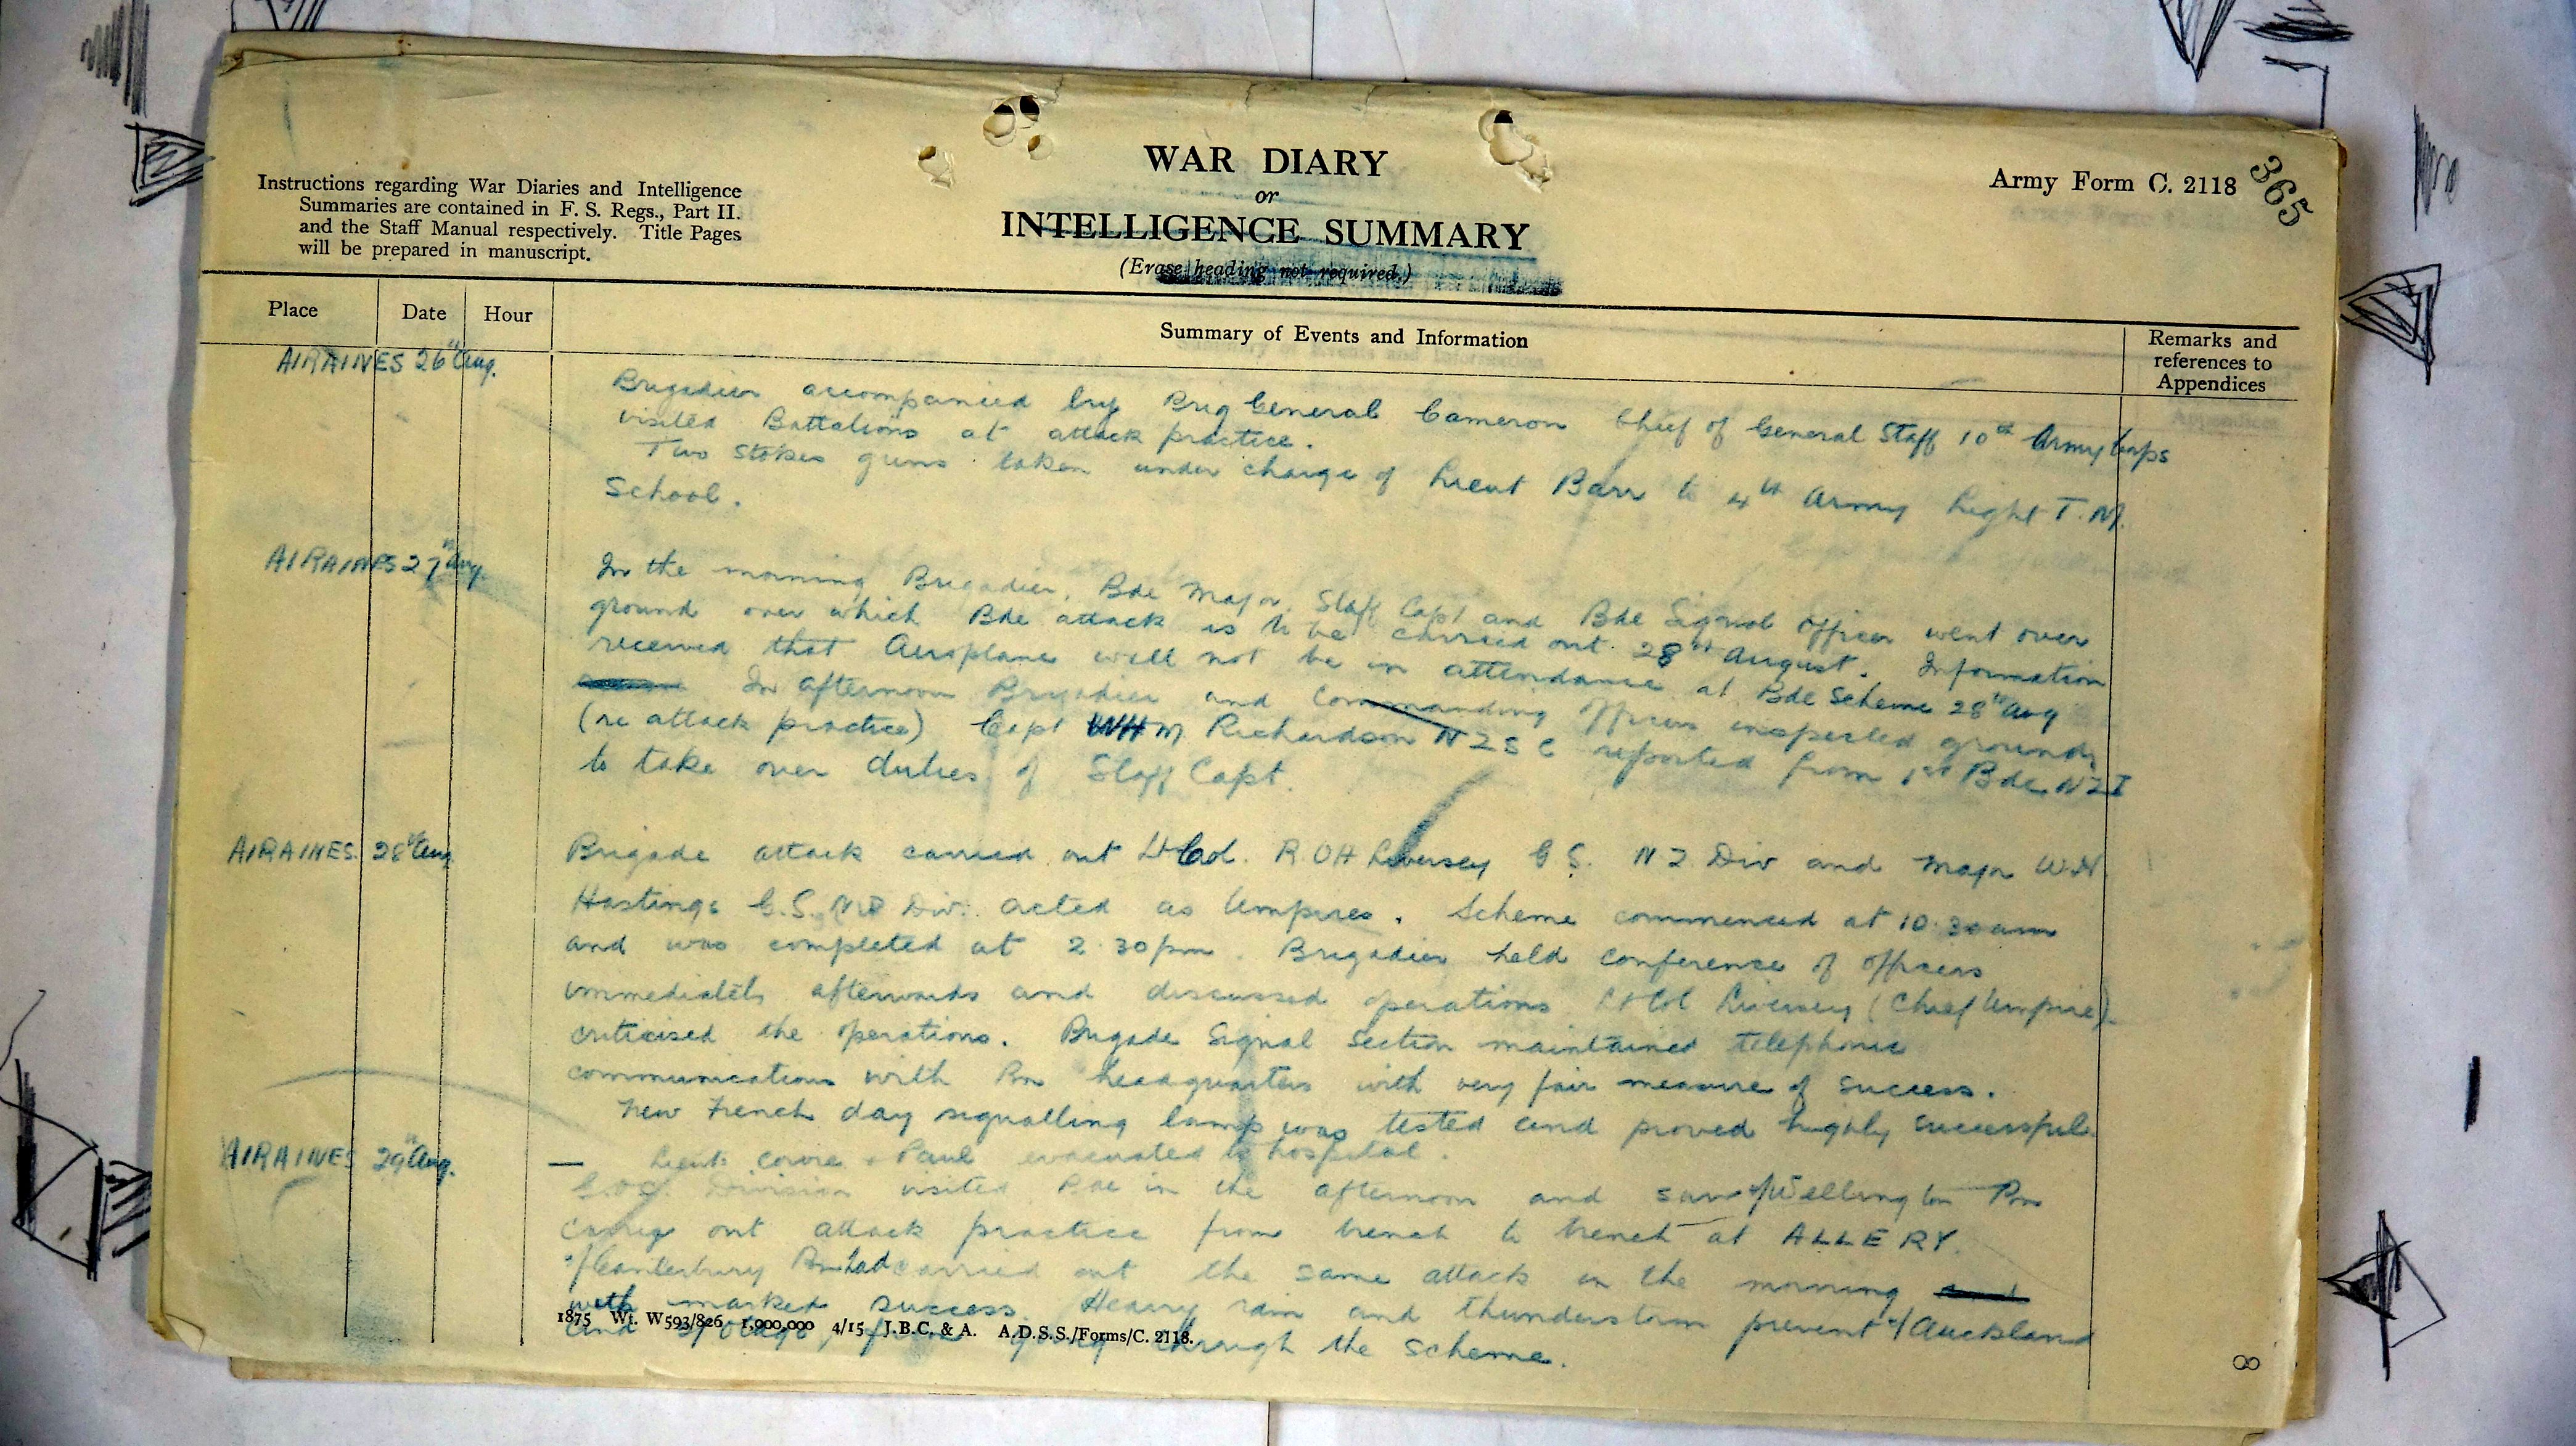 Instructions regarding War Diaries and Intelligence
Summaries are contained in F. S. Regs., Part II.
and the Staff Manual respectively. Title Pages
will be prepared in manuscript.
WAR DIARY
or
INTELLIGENCE SUMMARY
(Erase heading not required.)
Army Form C. 2118
365
Place
Date
Hour
Summary of Events and Information
Remarks and
references to
Appendices
AIRAINES 26th Aug.
Brigadier accompanied by Brig General Cameron Chief of General Staff 10th Army Corps
visited Battalions at attack practice.
Two Stokes guns taken under charge of Lieut Barr to 4th Army Light T.M.
School.
AIRAINES 27th Aug.
In the morning Brigadier, Bde Major, Staff Capt and Bde Signal Officer went over
ground over which Bde attack is to be carried out 28th August. Information
received that Aeroplane will not be in attendance at Bde Scheme 28th Aug
In afternoon Brigadier and Commanding Officers inspected ground
(re attack practice) Capt WHM Richardson NZSC reported from 1st Bde NZI
to take over duties of Staff Capt.
AIRAINES. 28th Aug
Brigade attack carried out Lt Col. R.OH Liversey G.S. NZ Div and Major W.N
Hastings G.S. NZ Div. acted as Umpires. Scheme commenced at 10.30am
and was completed at 2.30pm. Brigadier held conference of officers
immediately afterwards and discussed operations Lt Col Liversey (Chief Umpire)
criticised the operations. Brigade Signal Section maintained telephonic
communications with Bn headquarters with very fair measure of success.
New French day signalling lamp was tested and proved highly successful.
AIRAINES 29th Aug.
— Lieuts & Paul evacuated to hospital.
G.O.C. Division visited Bde in the afternoon and saw 2/Wellington Bn
carry out attack practice from trench to trench at ALLERY.
2/Canterbury Bn had carried out the same attack in the morning and
with marked success Heavy rain and thunderstorm prevent 2/Auckland
and 2/Otago from going through the scheme.
1875 Wt. W593/826 1,900,000 4/15 J.B.C. & A. A.D.S.S./Forms/C. 2118.
8